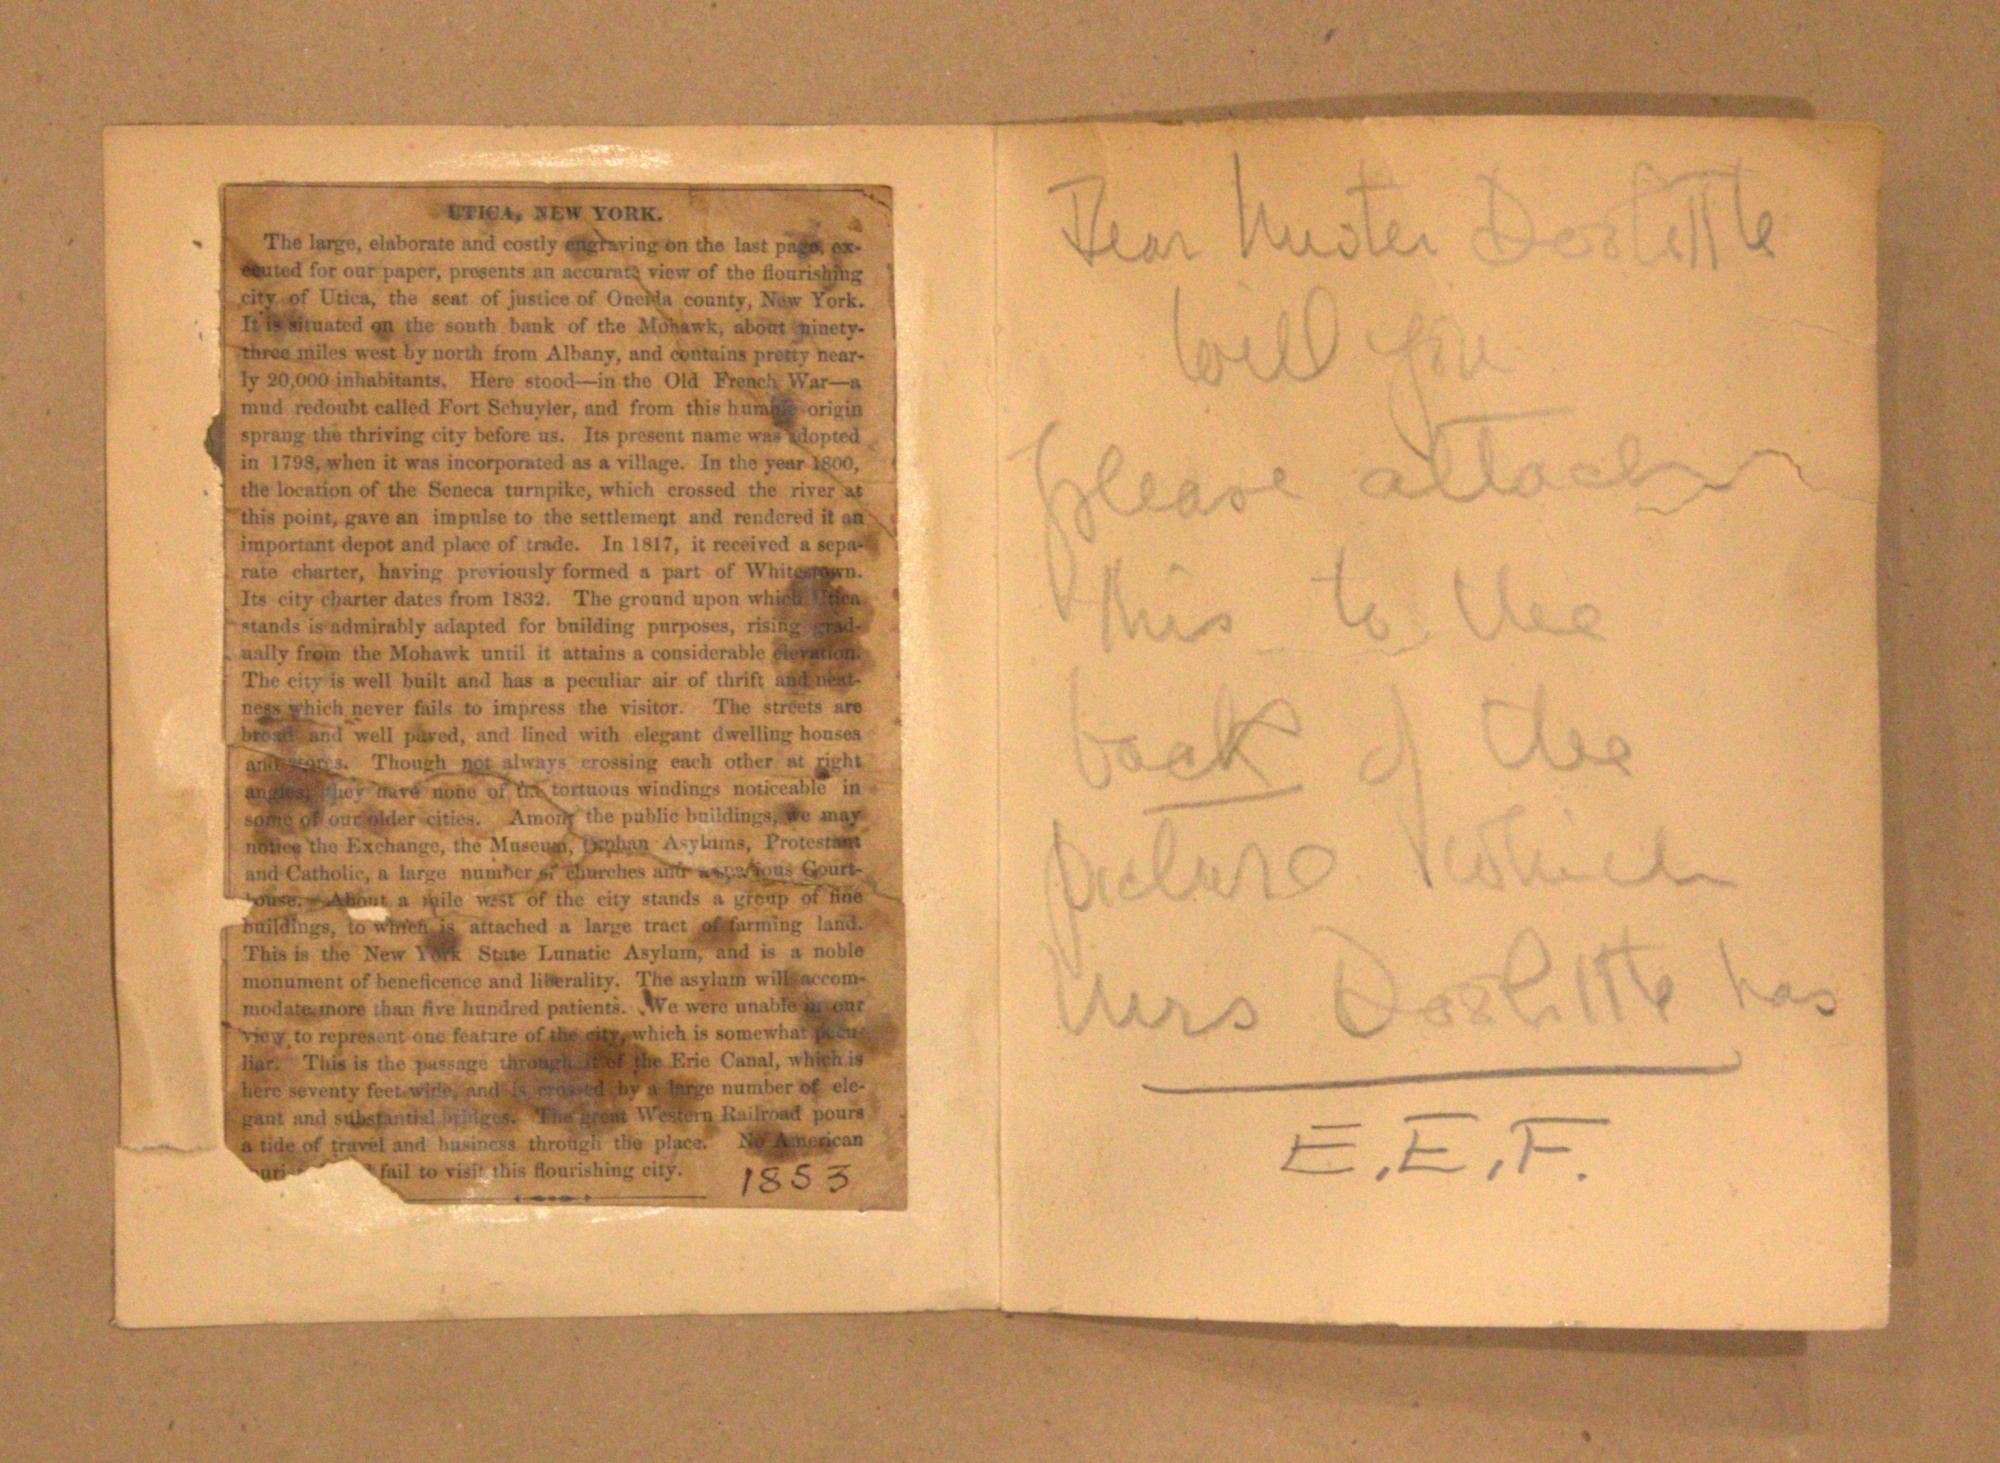 UTICA, NEW YORK.
The large, elaborate and costly engraving on the last page, ex-
ecuted for our paper, presents an accurate view of the flourishing
city of Utica, the seat of justice of Oneida county, New York.
It is situated on the south bank of the Mohawk, about ninety-
three miles west by north from Albany, and contains pretty near-
ly 20,000 inhabitants. Here stood—in the Old French War—a
mud redoubt called Fort Schuyler, and from this humble origin
sprang the thriving city before us. Its present name was adopted
in 1798, when it was incorporated as a village. In the year 1800,
the location of the Seneca turnpike, which crossed the river at
this point, gave an impulse to the settlement and rendered it an
important depot and place of trade. In 1817, it received a sepa-
rate charter, having previously formed a part of Whitestown.
Its city charter dates from 1832. The ground upon which Utica
stands is admirably adapted for building purposes, rising grad-
ually from the Mohawk until it attains a considerable elevation.
The city is well built and has a peculiar air of thrift and neat-
ness which never fails to impress the visitor. The streets are
broad and well paved, and lined with elegant dwelling houses
and stores. Though not always crossing each other at right
angles, they have none of the tortuous windings noticeable in
some of our older cities. Among the public buildings, we may
notice the Exchange, the Museum, Orphan Asylums, Protestant
and Catholic, a large number of churches and a spacious Court-
house. About a mile west of the city stands a group of fine
buildings, to which is attached a large tract of farming land.
This is the New York State Lunatic Asylum, and is a noble
monument of beneficence and liberality. The asylum will accom-
modate more than five hundred patients. We were unable in our
view to represent one feature of the city, which is somewhat pecu-
liar. This is the passage through it of the Erie Canal, which is
here seventy feet wide, and is crossed by a large number of ele-
gant and substantial bridges. The great Western Railroad pours
a tide of travel and business through the place. No American
fail to visit this flourishing city.
1853
Dear Mister Doolittle
Will you
please attach
this to the
back of the
picture which
Mrs Doolittle has
E.E.F.